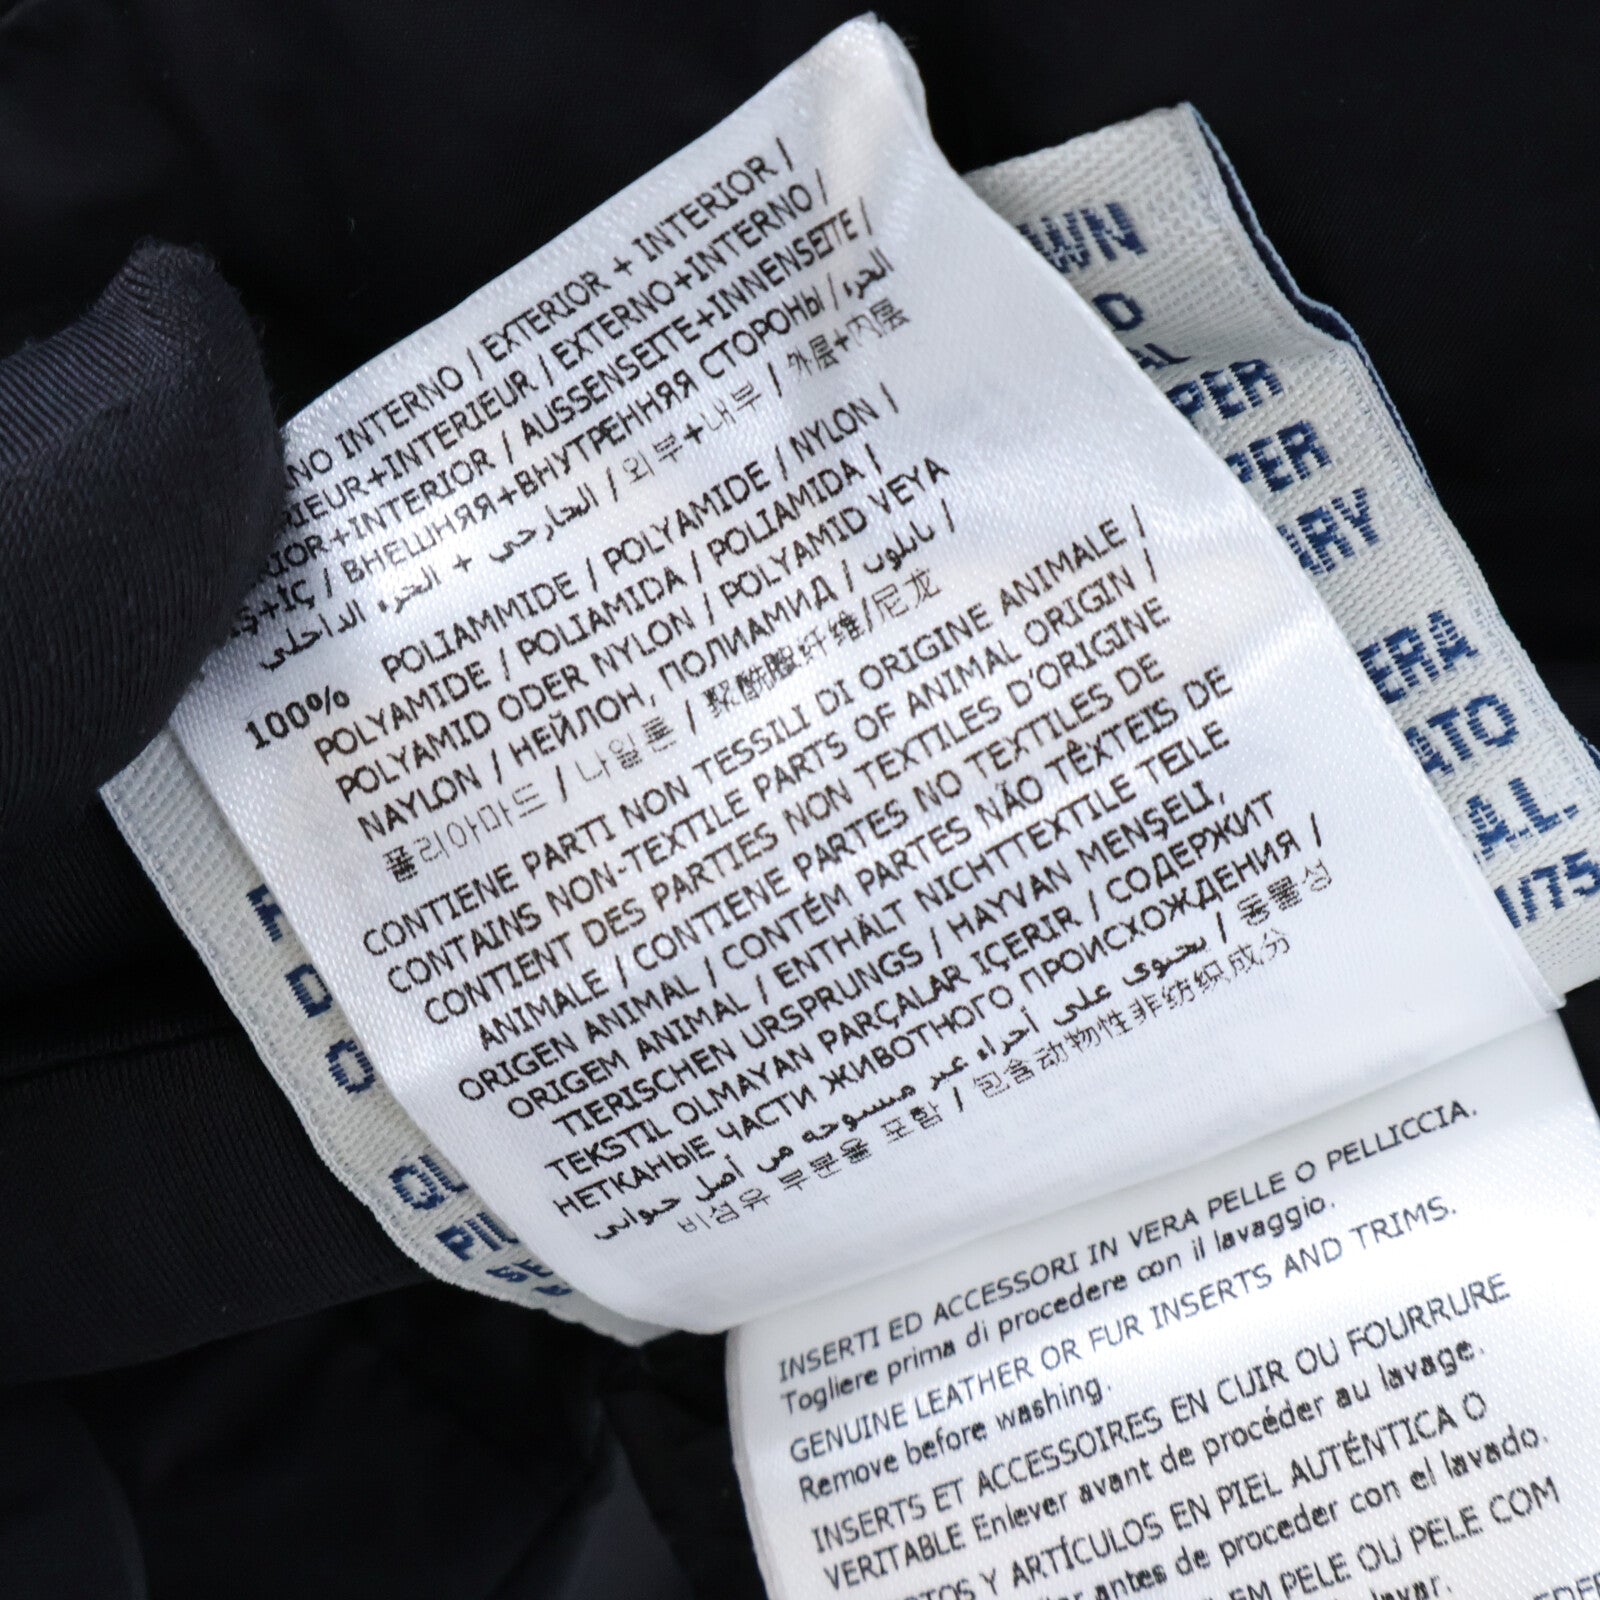 NO INTERNO / EXTERIOR + INTERIOR /
RIEUR+INTERIEUR / EXTERNO+INTERNO /
IOR+INTERIOR / AUSSENSEITE+INNENSEITE /
Ş+İÇ / ВНЕШНЯЯ+ВНУТРЕННЯЯ СТОРОНЫ / الجزء
الخارجي + الجزء الداخلي / 외부+내부 / 外层+内层
100% POLIAMMIDE / POLYAMIDE / NYLON /
POLYAMIDE / POLIAMIDA / POLIAMIDA /
POLYAMID ODER NYLON / POLYAMID VEYA
NAYLON / НЕЙЛОН, ПОЛИАМИД / نايلون /
폴리아마드 / 나일론 / 聚酰胺纤维/尼龙
CONTIENE PARTI NON TESSILI DI ORIGINE ANIMALE /
CONTAINS NON-TEXTILE PARTS OF ANIMAL ORIGIN /
CONTIENT DES PARTIES NON TEXTILES D'ORIGINE
ANIMALE / CONTIENE PARTES NO TEXTILES DE
ORIGEN ANIMAL / CONTÉM PARTES NÃO TÊXTEIS DE
ORIGEM ANIMAL / ENTHÄLT NICHTTEXTILE TEILE
TIERISCHEN URSPRUNGS / HAYVAN MENŞELI,
TEKSTIL OLMAYAN PARÇALAR IÇERIR / СОДЕРЖИТ
НЕТКАНЫЕ ЧАСТИ ЖИВОТНОГО ПРОИСХОЖДЕНИЯ /
يحتوي على أجزاء غير منسوجة من أصل حيواني / 동물성
비섬유 부분을 포함 / 包含动物性非纺织成分
INSERTI ED ACCESSORI IN VERA PELLE O PELLICCIA.
Togliere prima di procedere con il lavaggio.
GENUINE LEATHER OR FUR INSERTS AND TRIMS.
Remove before washing.
INSERTS ET ACCESSOIRES EN CUIR OU FOURRURE
VERITABLE Enlever avant de procéder au lavage.
Y ARTÍCULOS EN PIEL AUTÉNTICA O
antes de proceder con el lavado.
EM PELE OU PELE COM
WN
D
AL
PER
PER
ARY
ERA
ATO
A.L.
1/75
D
O
QU
PIU